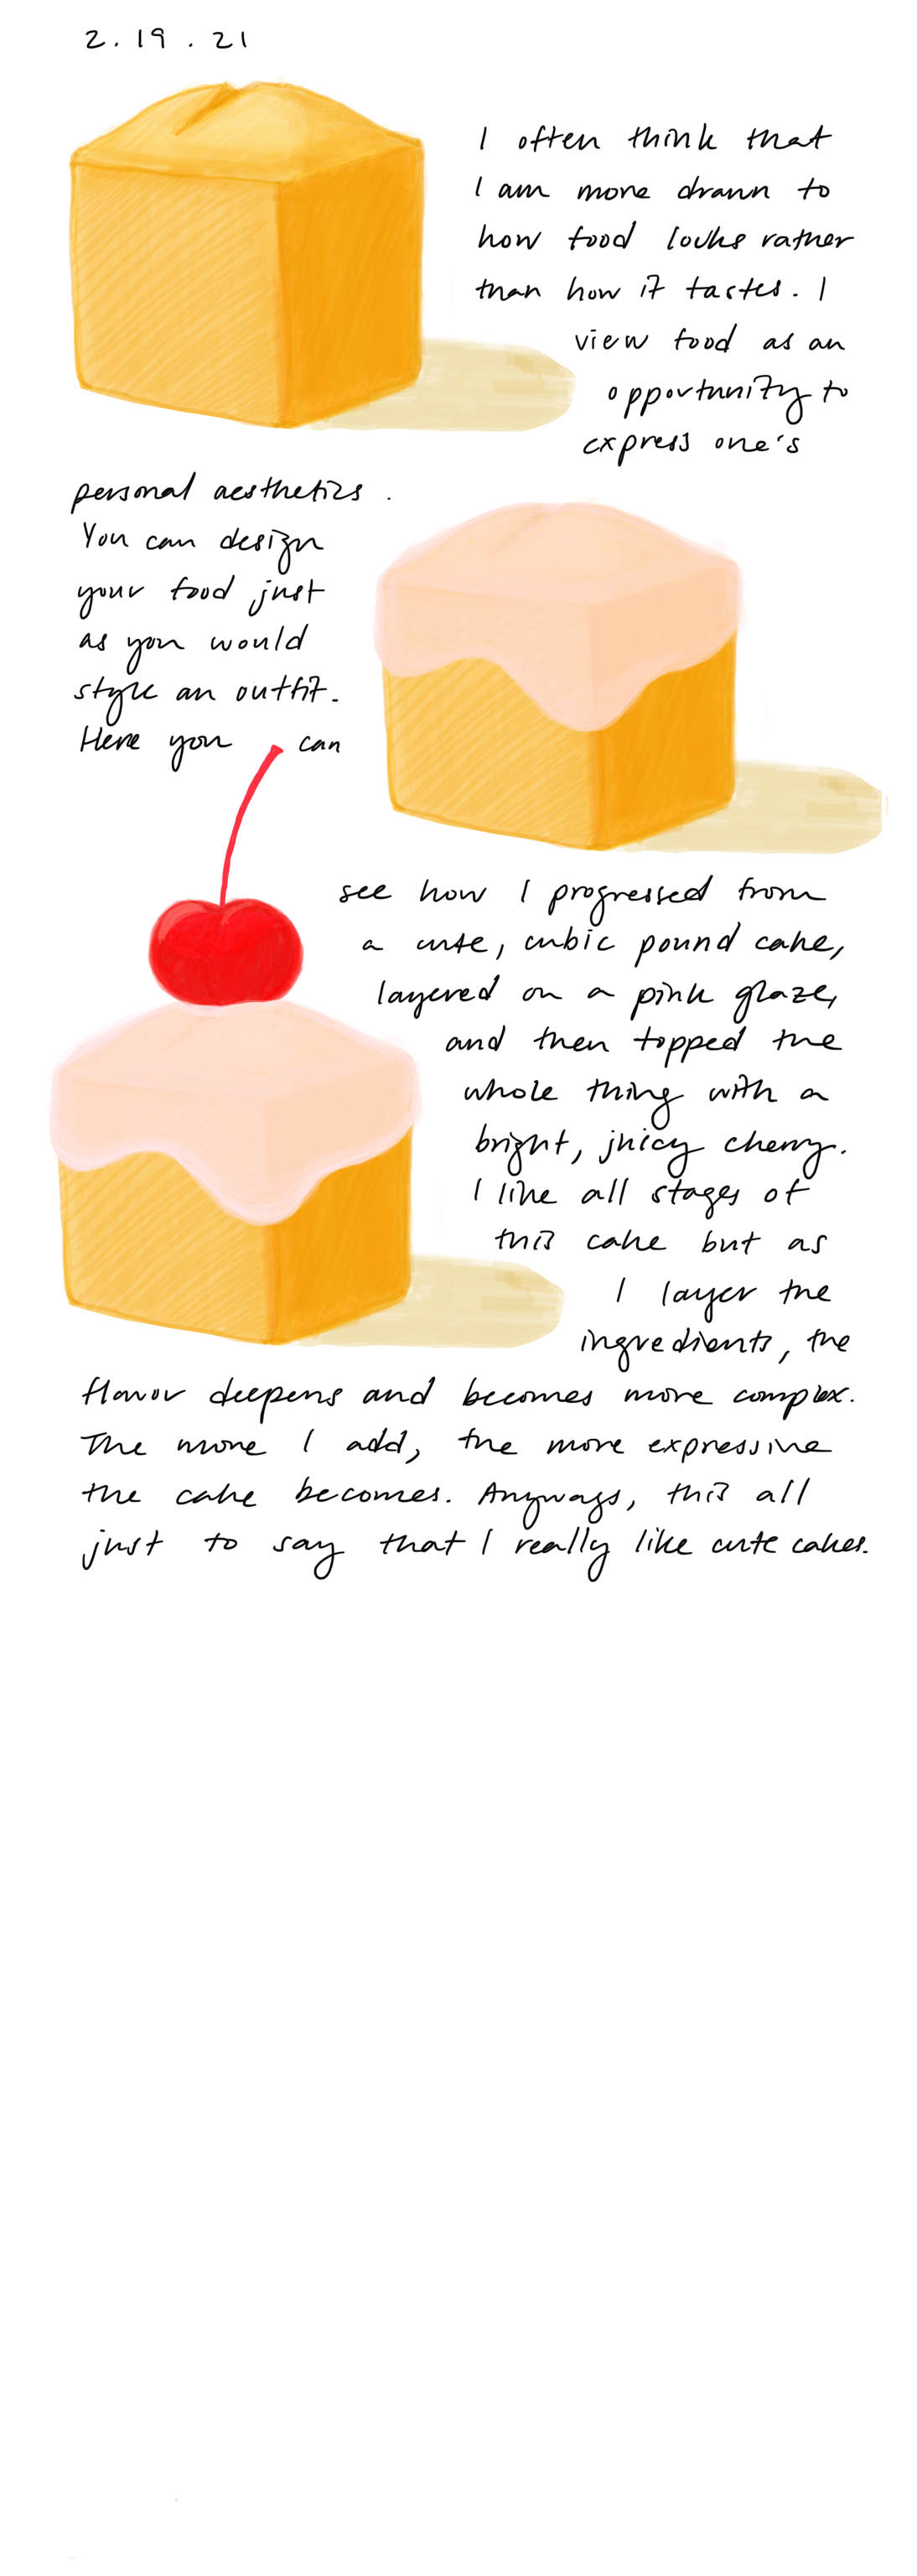 2.19.21
I often think that
I am more drawn to
how food looks rather
than how it tastes. I
view food as an
opportunity to
express one's
personal aesthetics.
You can design
your food just
as you would
style an outfit.
Here you can
see how I progressed from
a cute, cubic pound cake,
layered on a pink glaze,
and then topped the
whole thing with a
bright, juicy cherry.
I like all stages of
this cake but as
I layer the
ingredients, the
flavor deepens and becomes more complex.
The more I add, the more expressive
the cake becomes. Anyways, this all
just to say that I really like cute cakes.